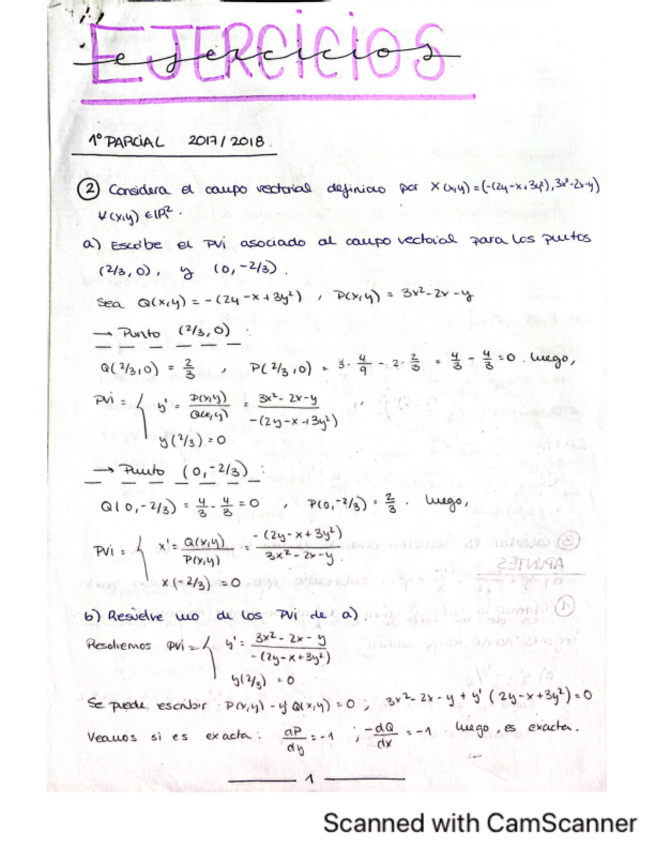 EJERCICIOS
ejercicios
1º PARCIAL 2017/2018.
② Considera el campo vectorial definido por X(x,y)=(-(2y-x+3y²),3x²-2x-y)
∀(x,y)∈ℝ².
a) Escribe el PVI asociado al campo vectorial para los puntos
(2/3,0), y (0,-2/3).
Sea Q(x,y) = -(2y-x+3y²) , P(x,y) = 3x²-2x-y
→ Punto (2/3,0) :
Q(2/3,0) = 2/3 , P(2/3,0) = 3·4/9 - 2·2/3 = 4/3 - 4/3 = 0. Luego,
PVI = { y' = P(x,y)/Q(x,y) = 3x²-2x-y/-(2y-x+3y²)
y(2/3)=0
→ Punto (0,-2/3) :
Q(0,-2/3) = 4/3 - 4/3 = 0 , P(0,-2/3) = 2/3 . Luego,
PVI = { x' = Q(x,y)/P(x,y) = -(2y-x+3y²)/3x²-2x-y
x(-2/3) = 0
b) Resuelve uno de los PVI de a).
Resolvemos PVI = { y' = 3x²-2x-y/-(2y-x+3y²)
y(2/3) = 0
Se puede escribir P(x,y) - y'Q(x,y) = 0 ; 3x²-2x-y + y'(2y-x+3y²)=0
Veamos si es exacta: dP/dy = -1 ; -dQ/dx = -1 luego, es exacta.
1
APUNTES
Scanned with CamScanner